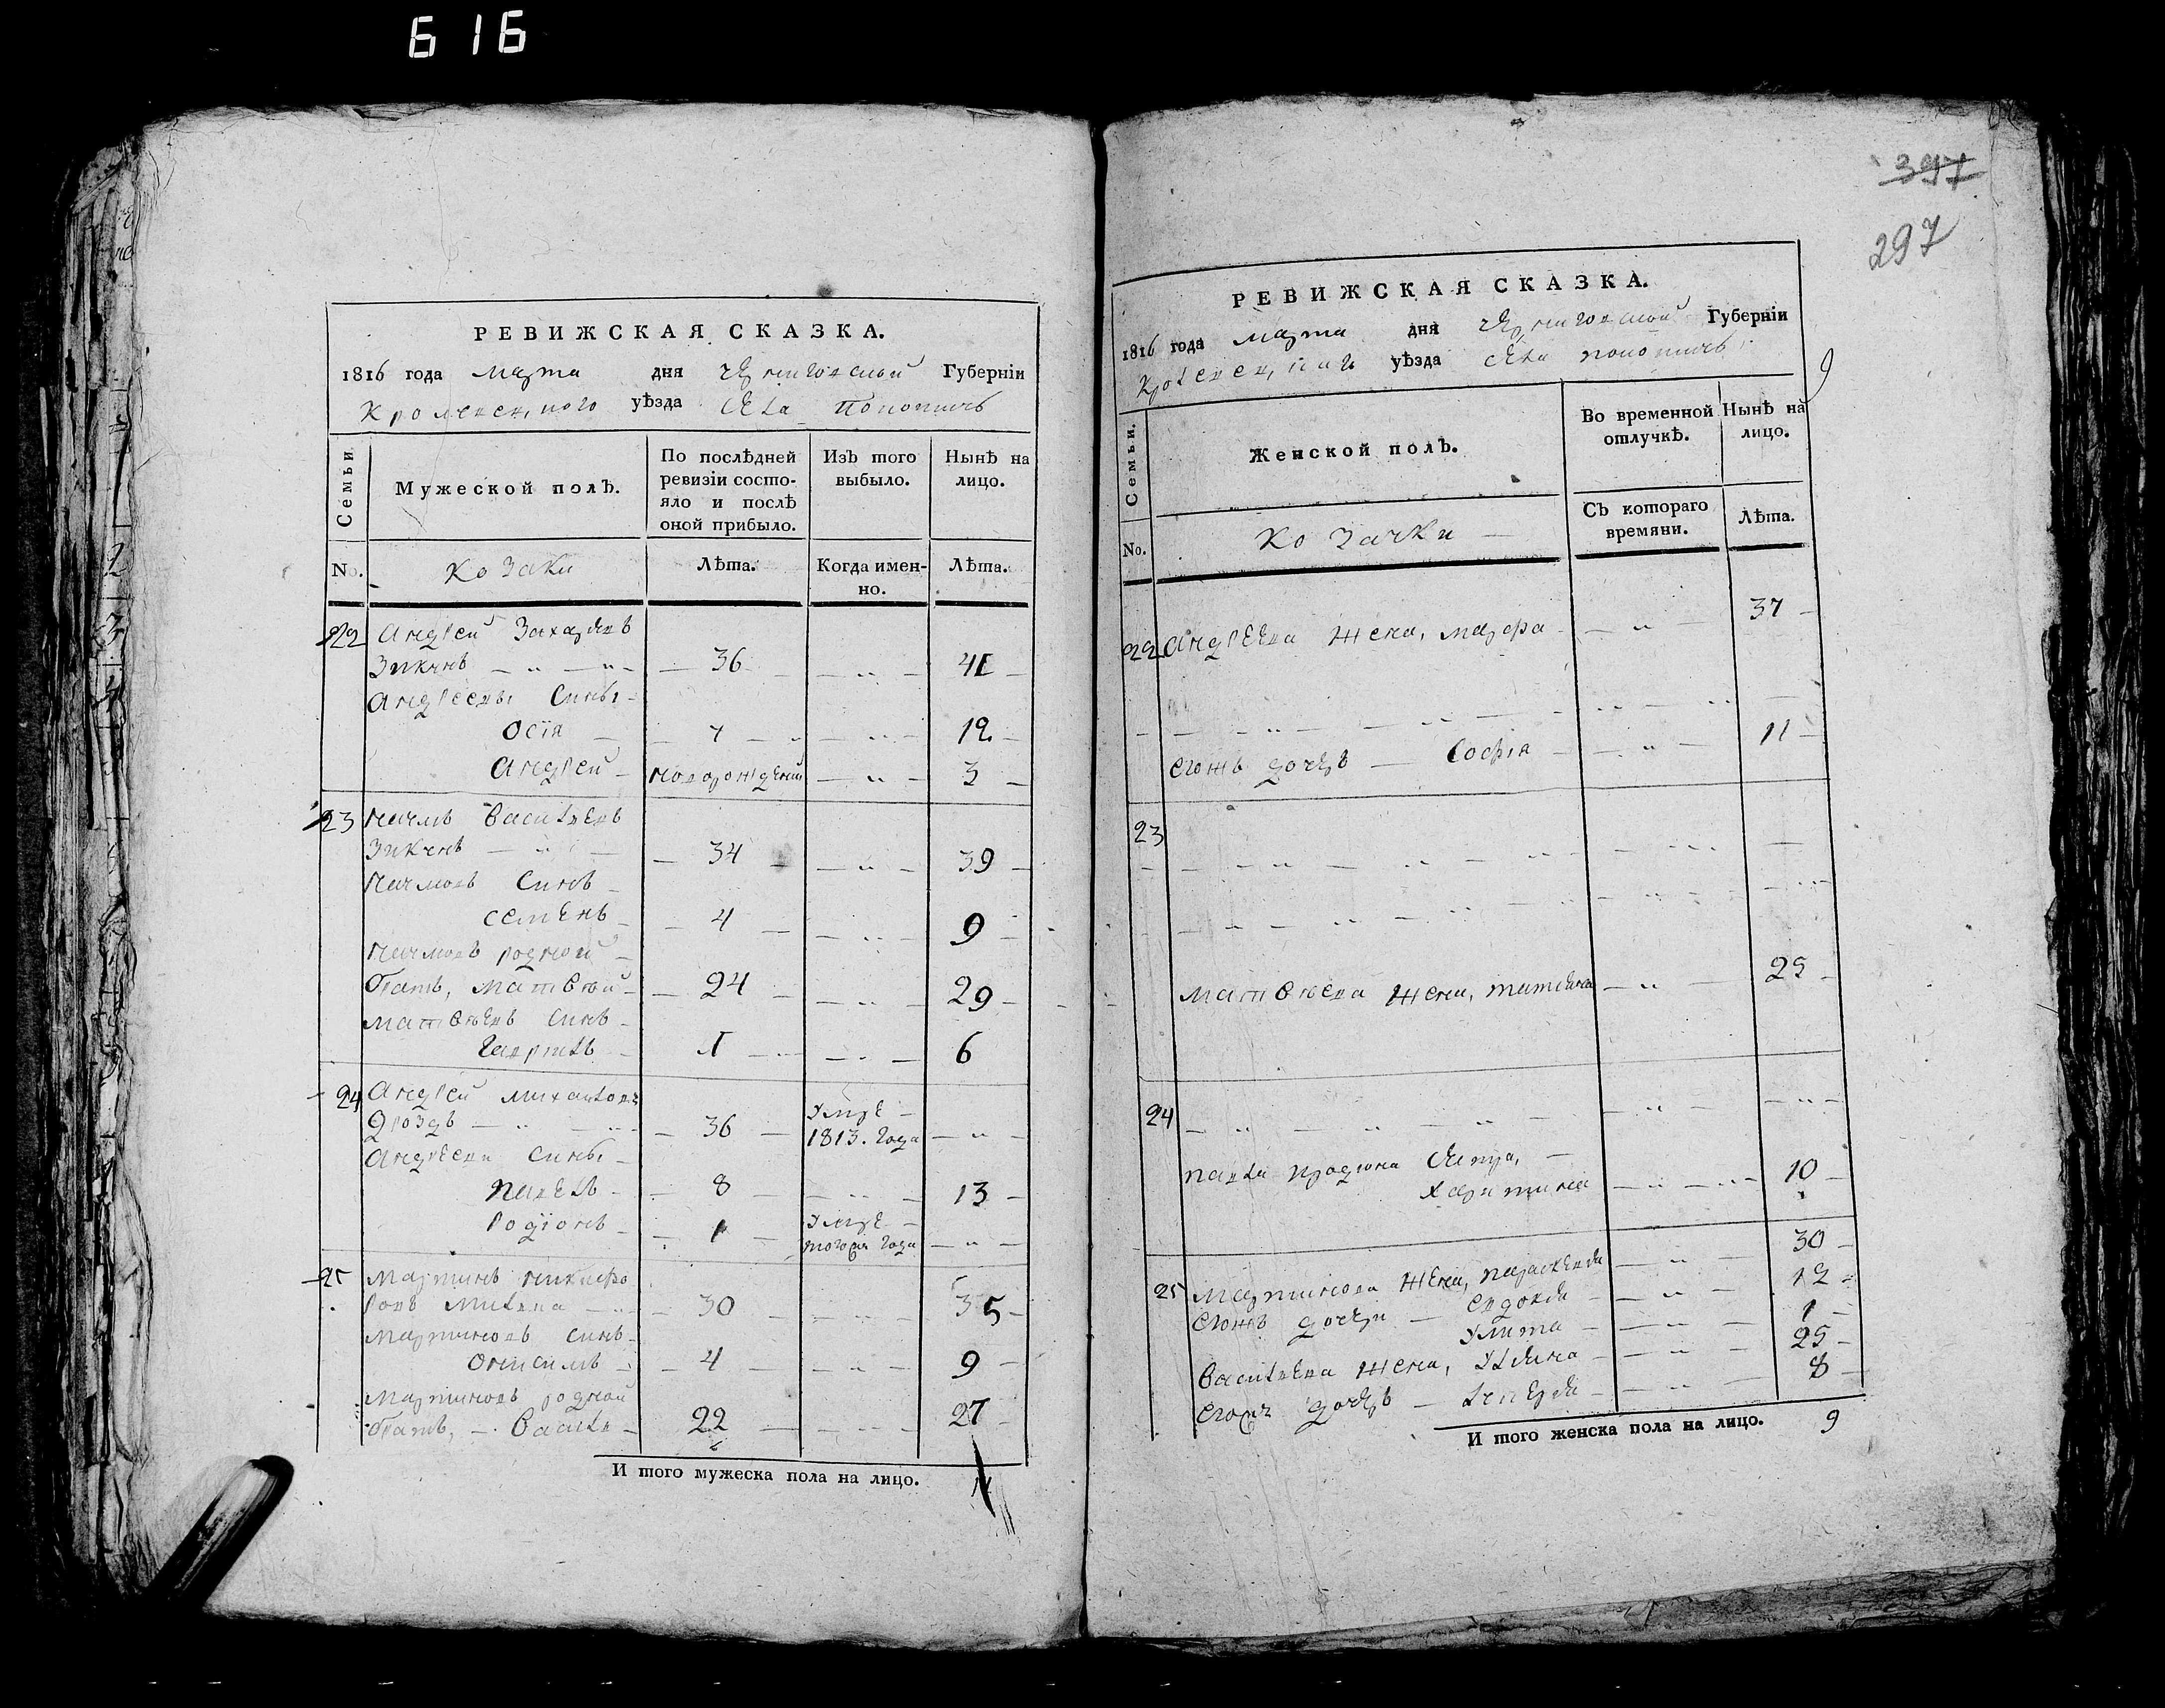 616
397
297
РЕВИЖСКАЯ СКАЗКА.
1816 года марта дня черниговской Губерніи
Кролевецкого уѣзда села Понопичь
Семьи.
Мужеской полъ.
По послѣдней ревизіи состо-
яло и послѣ оной прибыло.
Изъ того выбыло.
Нынѣ на лицо.
No.
Козаки
Лѣта.
Когда имен-
но.
Лѣта.
22 Андрей Захарiевъ
36 41
Андреевы Сины
Осiя 7 12
Андрей новорождений 3
23 Наумъ Василiевъ
34 39
Наумовъ Синъ
семенъ 4 9
Наумовъ родной
братъ, Матвѣй 24 29
Матвѣевъ Синъ
Гаврилъ 1 6
24 Андрей Михайловъ
Дроздъ 36 умре 1813. года
Андреевы Сины
Павелъ 8 13
Родiонъ 1 умре
того года
25 Мартинъ никифо
ровъ 30 35
Мартиновъ Синъ
Онисимъ 4 9
Мартиновъ родной
братъ, Василь 22 27
И того мужеска пола на лицо.
РЕВИЖСКАЯ СКАЗКА.
1816 года марта дня черниговской Губерніи
уѣзда села Понопичь
Семьи.
Женской полъ.
Во временной отлучкѣ.
Нынѣ на лицо.
No.
Козачки
Съ котораго времяни.
Лѣта.
22 Андреева жена, Марфа 37
егожъ дочеръ Софiя 11
23
Матвѣева жена, татiяна 25
24
Харитина 10
25 Мартинова жена, параскевiя 30
егожъ дочери Евдокiя 12
Улита 1
Василiева жена, Улiяна 25
дочеръ 8
И того женска пола на лицо. 9